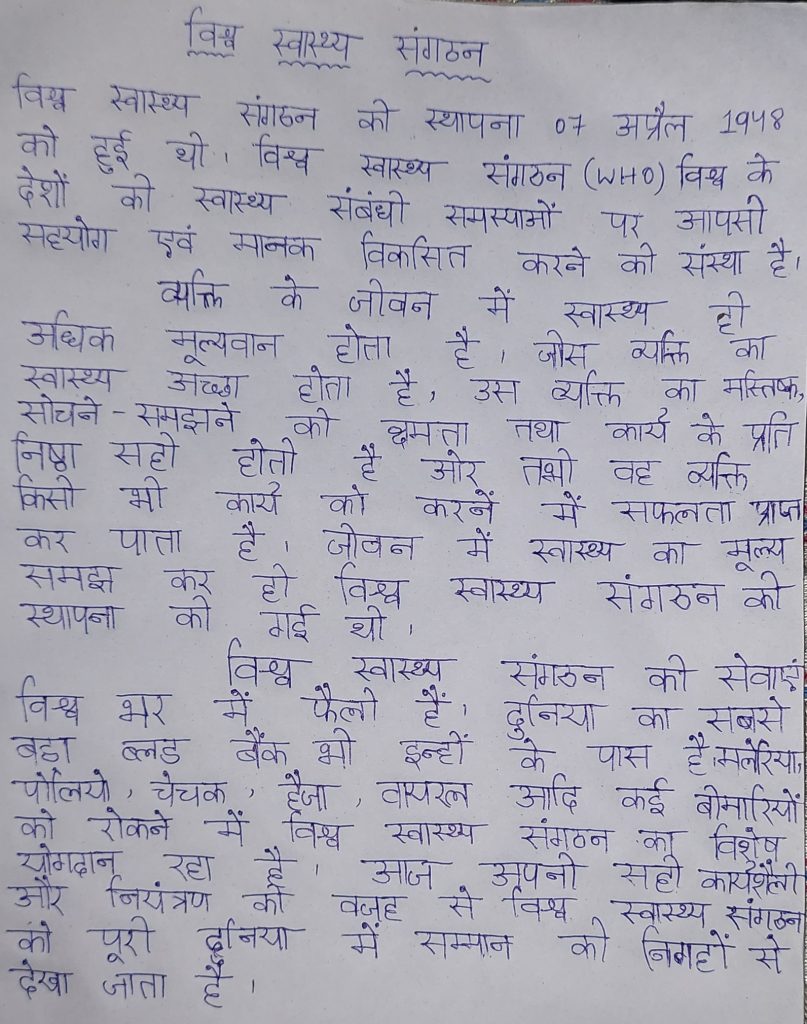 विश्व स्वास्थ्य संगठन
विश्व स्वास्थ्य संगठन की स्थापना 07 अप्रैल 1948
को हुई थी। विश्व स्वास्थ्य संगठन (WHO) विश्व के
देशों की स्वास्थ्य संबंधी समस्याओं पर आपसी
सहयोग एवं मानक विकसित करने की संस्था है।
व्यक्ति के जीवन में स्वास्थ्य ही
अधिक मूल्यवान होता है, जीस व्यक्ति का
स्वास्थ्य अच्छा होता है, उस व्यक्ति का मस्तिष्क,
सोचने - समझने की क्षमता तथा कार्य के प्रति
निष्ठा सही होती है ओर तभी वह व्यक्ति
किसी भी कार्य को करनें में सफलता प्राप्त
कर पाता है। जीवन में स्वास्थ्य का मूल्य
समझ कर ही विश्व स्वास्थ्य संगठन की
स्थापना की गई थी।
विश्व स्वास्थ्य संगठन की सेवाएं
विश्व भर में फैली हैं। दुनिया का सबसे
बडा ब्लड बैंक भी इन्हीं के पास है। मलेरिया,
पोलियो, चेचक, हैजा, वायरल आदि कई बीमारियों
को रोकने में विश्व स्वास्थ्य संगठन का विशेष
योगदान रहा है। आज अपनी सही कार्यशैली
और नियंत्रण की वजह से विश्व स्वास्थ्य संगठन
को पूरी दुनिया में सम्मान की निगाहों से
देखा जाता है।